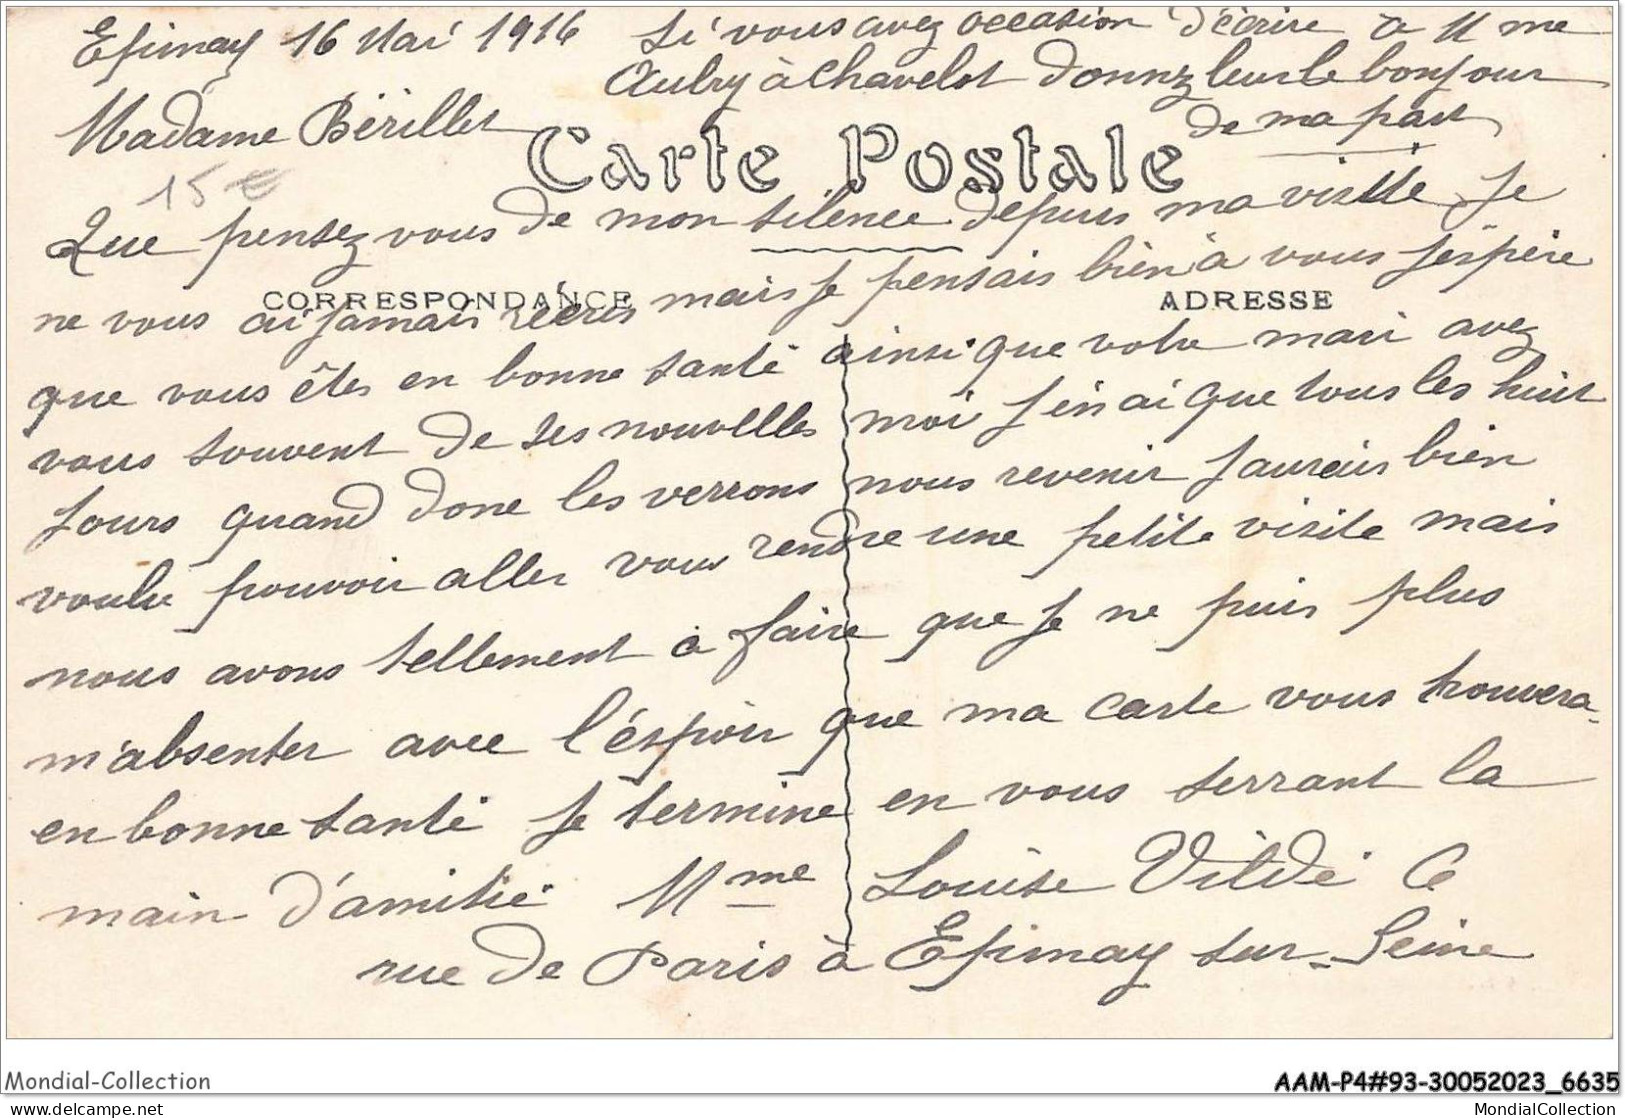 Epinay 16 Mai 1916
Si vous avez occasion d'écrire à Mme
Aubry à Chavelot donnez leur le bonjour
de ma part
Madame Bérillet
Carte Postale
15 €
Que pensez vous de mon silence depuis ma visite Je
CORRESPONDANCE
ADRESSE
ne vous ai jamais récris mais je pensais bien à vous J'éspère
que vous êtes en bonne santé ainsi que votre mari avez
vous souvent de ses nouvelles moi J'en ai que tous les huit
Jours quand donc les verrons nous revenir J'aurais bien
voulu pouvoir aller vous rendre une petite visite mais
nous avons tellement à faire que je ne puis plus
m'absenter avec l'éspoir que ma carte vous trouvera
en bonne santé Je termine en vous serrant la
main d'amitié Mme Louise Vildé 6
rue de Paris à Epinay sur-Seine
Mondial-Collection
AAM-P4#93-30052023_6635
https://www.mondial-collection.com
MondialCollection